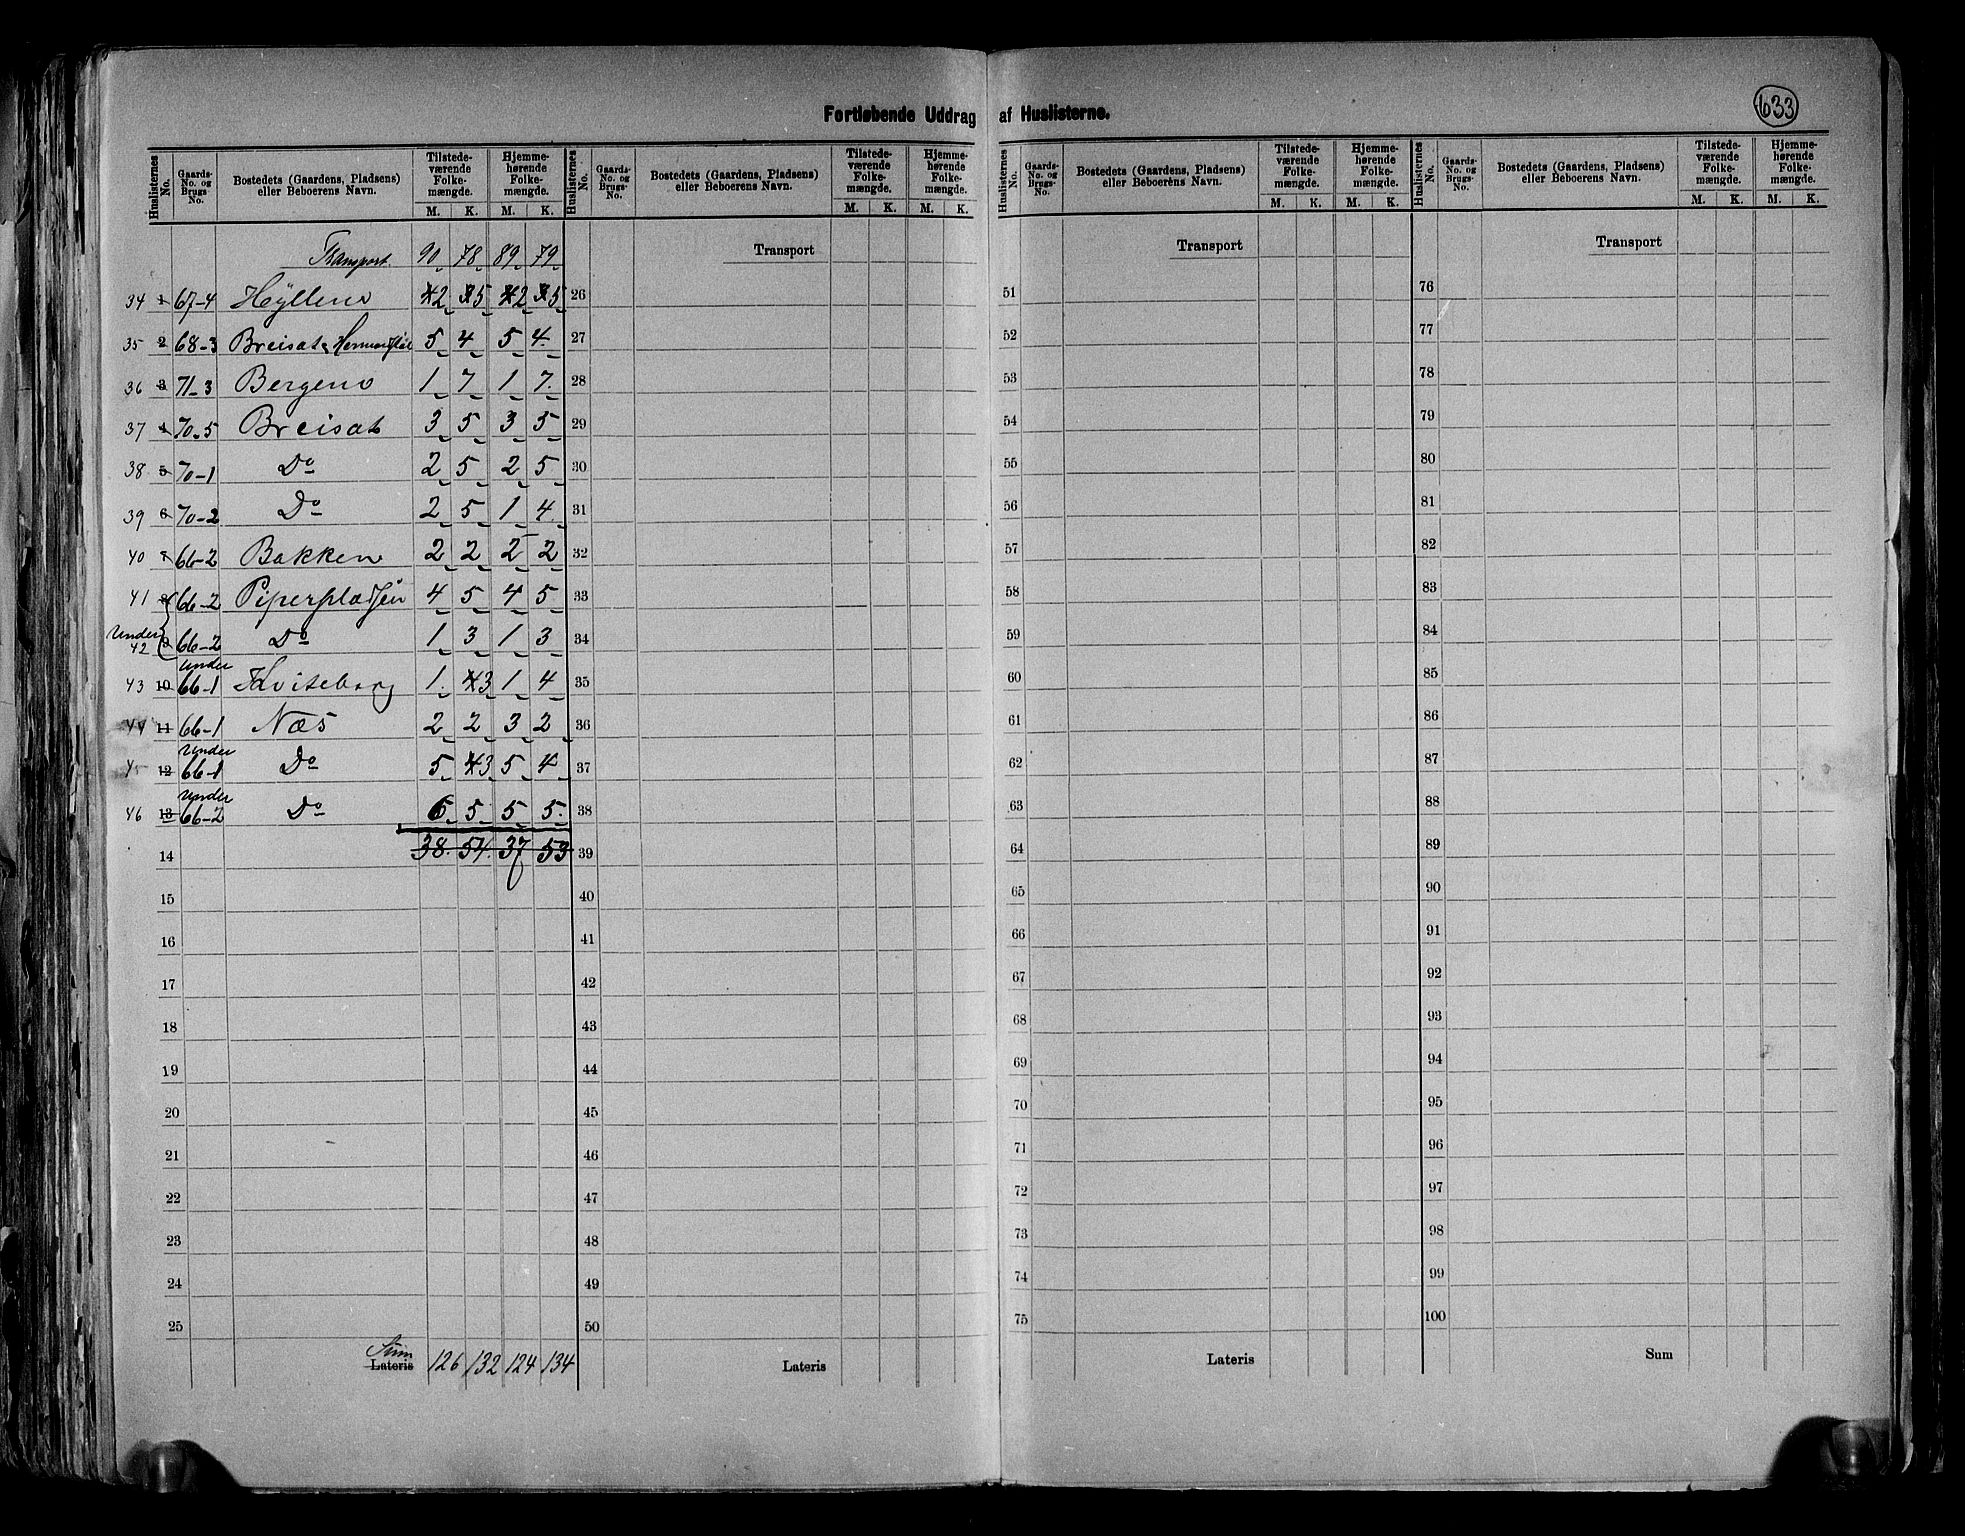 Fortløbende Uddrag af Huslisterne.
633
Huslisternes No. | Gaards-No. og Brugs-No. | Bostedets (Gaardens, Pladsens) eller Beboerens Navn. | Tilstedeværende Folkemængde. M. K. | Hjemmehørende Folkemængde. M. K.
Transport. 90 78 89 79
34 1 67-4 2 5 2 5
35 2 68-3 Breisat 5 4 5 4
36 3 71-3 Bergeno 1 7 1 7
37 4 70-5 Breisat 3 5 3 5
38 5 70-1 Do 2 5 2 5
39 6 70-2 Do 2 5 1 4
40 7 66-2 Bakken 2 2 2 2
41 8 66-2 Piperpladsen 4 5 4 5
Under 42 9 66-2 Do 1 3 1 3
43 10 under 66-1 Kviteberg 1 3 1 4
44 11 66-1 Næs 2 2 3 2
12 Under 66-1 Do 5 3 5 4
46 13 under 66-2 Do 6 5 5 5
14 38 54 37 53
15
16
17
18
19
20
21
22
23
24
25
Sum Lateris 126 132 124 134
Huslisternes No. | Gaards-No. og Brugs-No. | Bostedets (Gaardens, Pladsens) eller Beboerens Navn. | Tilstedeværende Folkemængde. M. K. | Hjemmehørende Folkemængde. M. K.
Transport
26
27
28
29
30
31
32
33
34
35
36
37
38
39
40
41
42
43
44
45
46
47
48
49
50
Lateris
Huslisternes No. | Gaards-No. og Brugs-No. | Bostedets (Gaardens, Pladsens) eller Beboerens Navn. | Tilstedeværende Folkemængde. M. K. | Hjemmehørende Folkemængde. M. K.
Transport
51
52
53
54
55
56
57
58
59
60
61
62
63
64
65
66
67
68
69
70
71
72
73
74
75
Lateris
Huslisternes No. | Gaards-No. og Brugs-No. | Bostedets (Gaardens, Pladsens) eller Beboerens Navn. | Tilstedeværende Folkemængde. M. K. | Hjemmehørende Folkemængde. M. K.
Transport
76
77
78
79
80
81
82
83
84
85
86
87
88
89
90
91
92
93
94
95
96
97
98
99
100
Sum